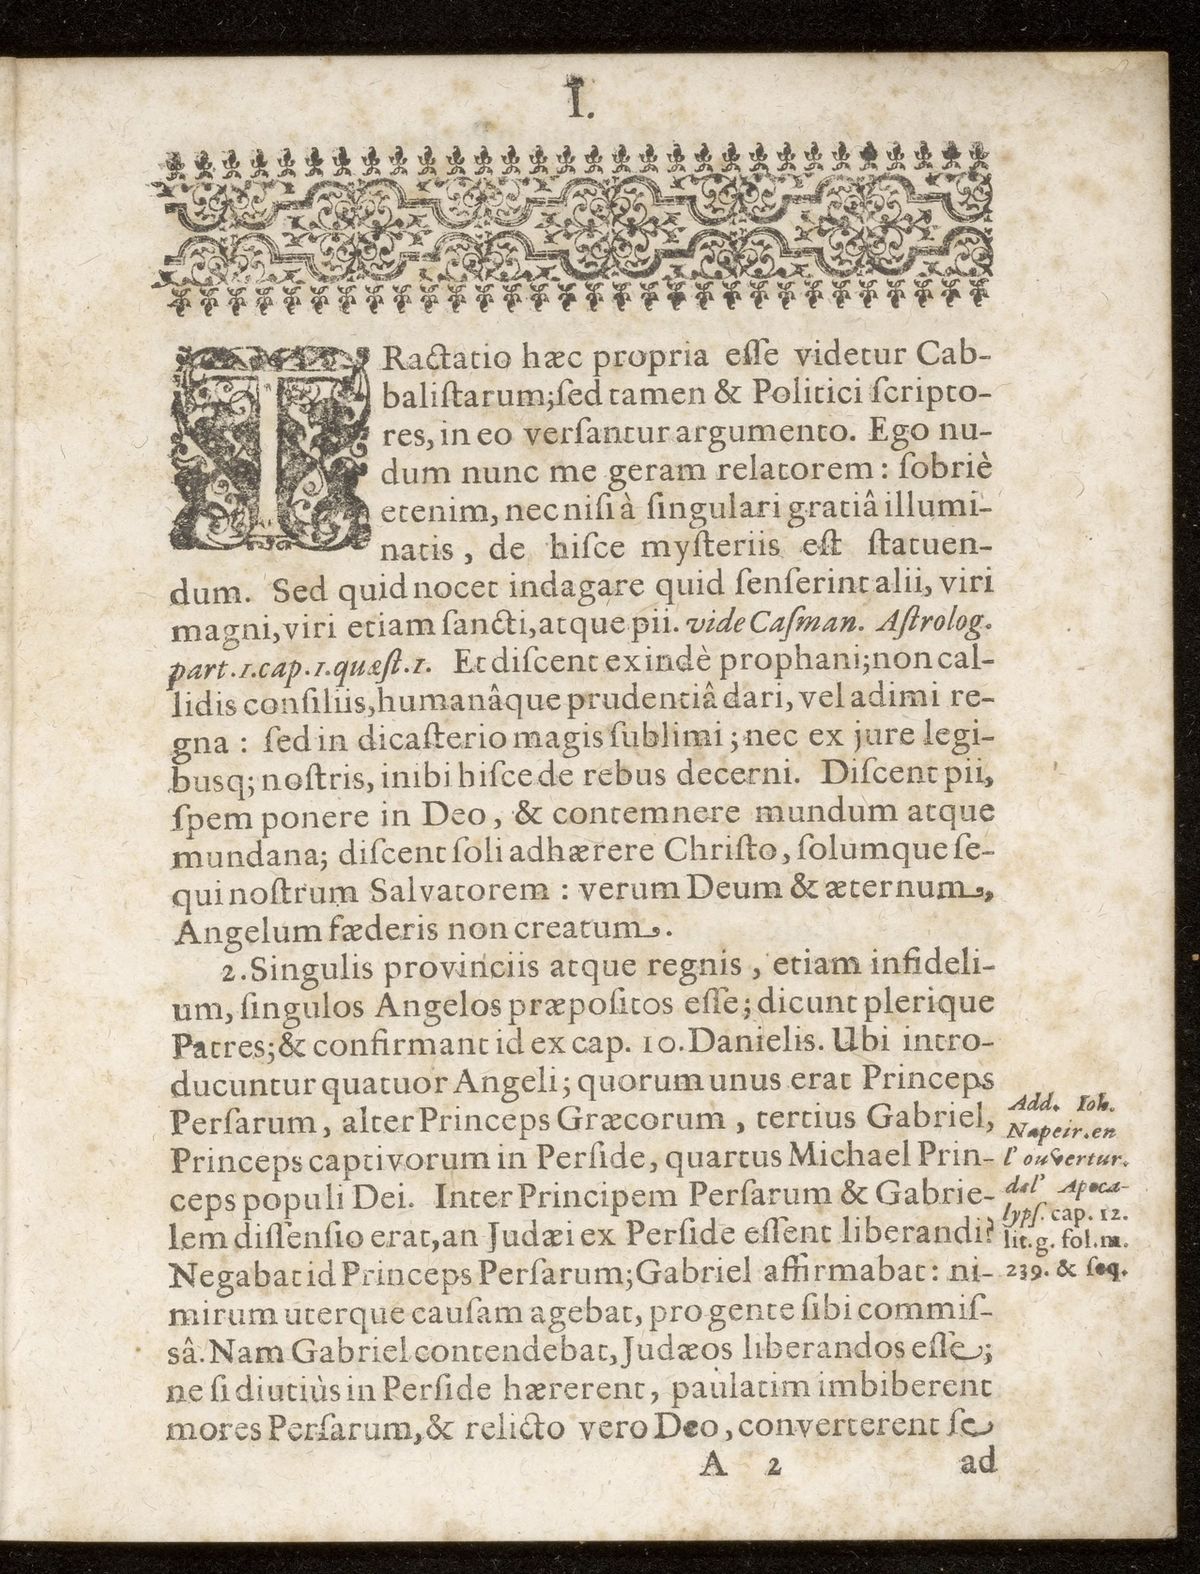 I.
TRactatio hæc propria eſſe videtur Cab-
baliſtarum;ſed tamen & Politici ſcripto-
res, in eo verſantur argumento. Ego nu-
dum nunc me geram relatorem : ſobriè
etenim, nec niſi à ſingulari gratiâ illumi-
natis , de hiſce myſteriis eſt ſtatuen-
dum. Sed quid nocet indagare quid ſenſerint alii, viri
magni, viri etiam ſancti, atque pii. vide Caſman. Aſtrolog.
part.1.cap.1.quæſt.1. Et diſcent exindè prophani; non cal-
lidis conſiliis, humanâque prudentiâ dari, vel adimi re-
gna : ſed in dicaſterio magis ſublimi ; nec ex jure legi-
busq; noſtris, inibi hiſce de rebus decerni. Diſcent pii,
ſpem ponere in Deo, & contemnere mundum atque
mundana; diſcent ſoli adhærere Chriſto, ſolumque ſe-
qui noſtrum Salvatorem : verum Deum & æternum,
Angelum fæderis non creatum.
2. Singulis provinciis atque regnis , etiam infideli-
um, ſingulos Angelos præpoſitos eſſe; dicunt plerique
Patres; & confirmant id ex cap. 10. Danielis. Ubi intro-
ducuntur quatuor Angeli; quorum unus erat Princeps
Perſarum, alter Princeps Græcorum , tertius Gabriel,
Princeps captivorum in Perſide, quartus Michael Prin-
ceps populi Dei. Inter Principem Perſarum & Gabrie-
lem diſſenſio erat, an Judæi ex Perſide eſſent liberandi?
Negabat id Princeps Perſarum; Gabriel affirmabat : ni-
mirum uterque cauſam agebat, pro gente ſibi commiſ-
sâ. Nam Gabriel contendebat, Judæos liberandos eſſe;
ne ſi diutiùs in Perſide hærerent, paulatim imbiberent
mores Perſarum, & relicto vero Deo, converterent ſe
A 2 ad
Add. Ioh.
Napeir. en
l' ouvertur.
del' Apoca-
lypſ. cap. 12.
lit. g. fol. m.
239. & ſeq.